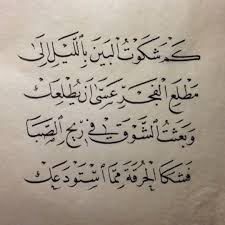 كم شكوتُ البينَ بالليلِ إلى
مطلعِ الفجرِ عسى أن يُطلعك
وبعثتُ الشوقَ في ريحِ الصَّبا
فشكا الحرقةَ ممّا أستودعك